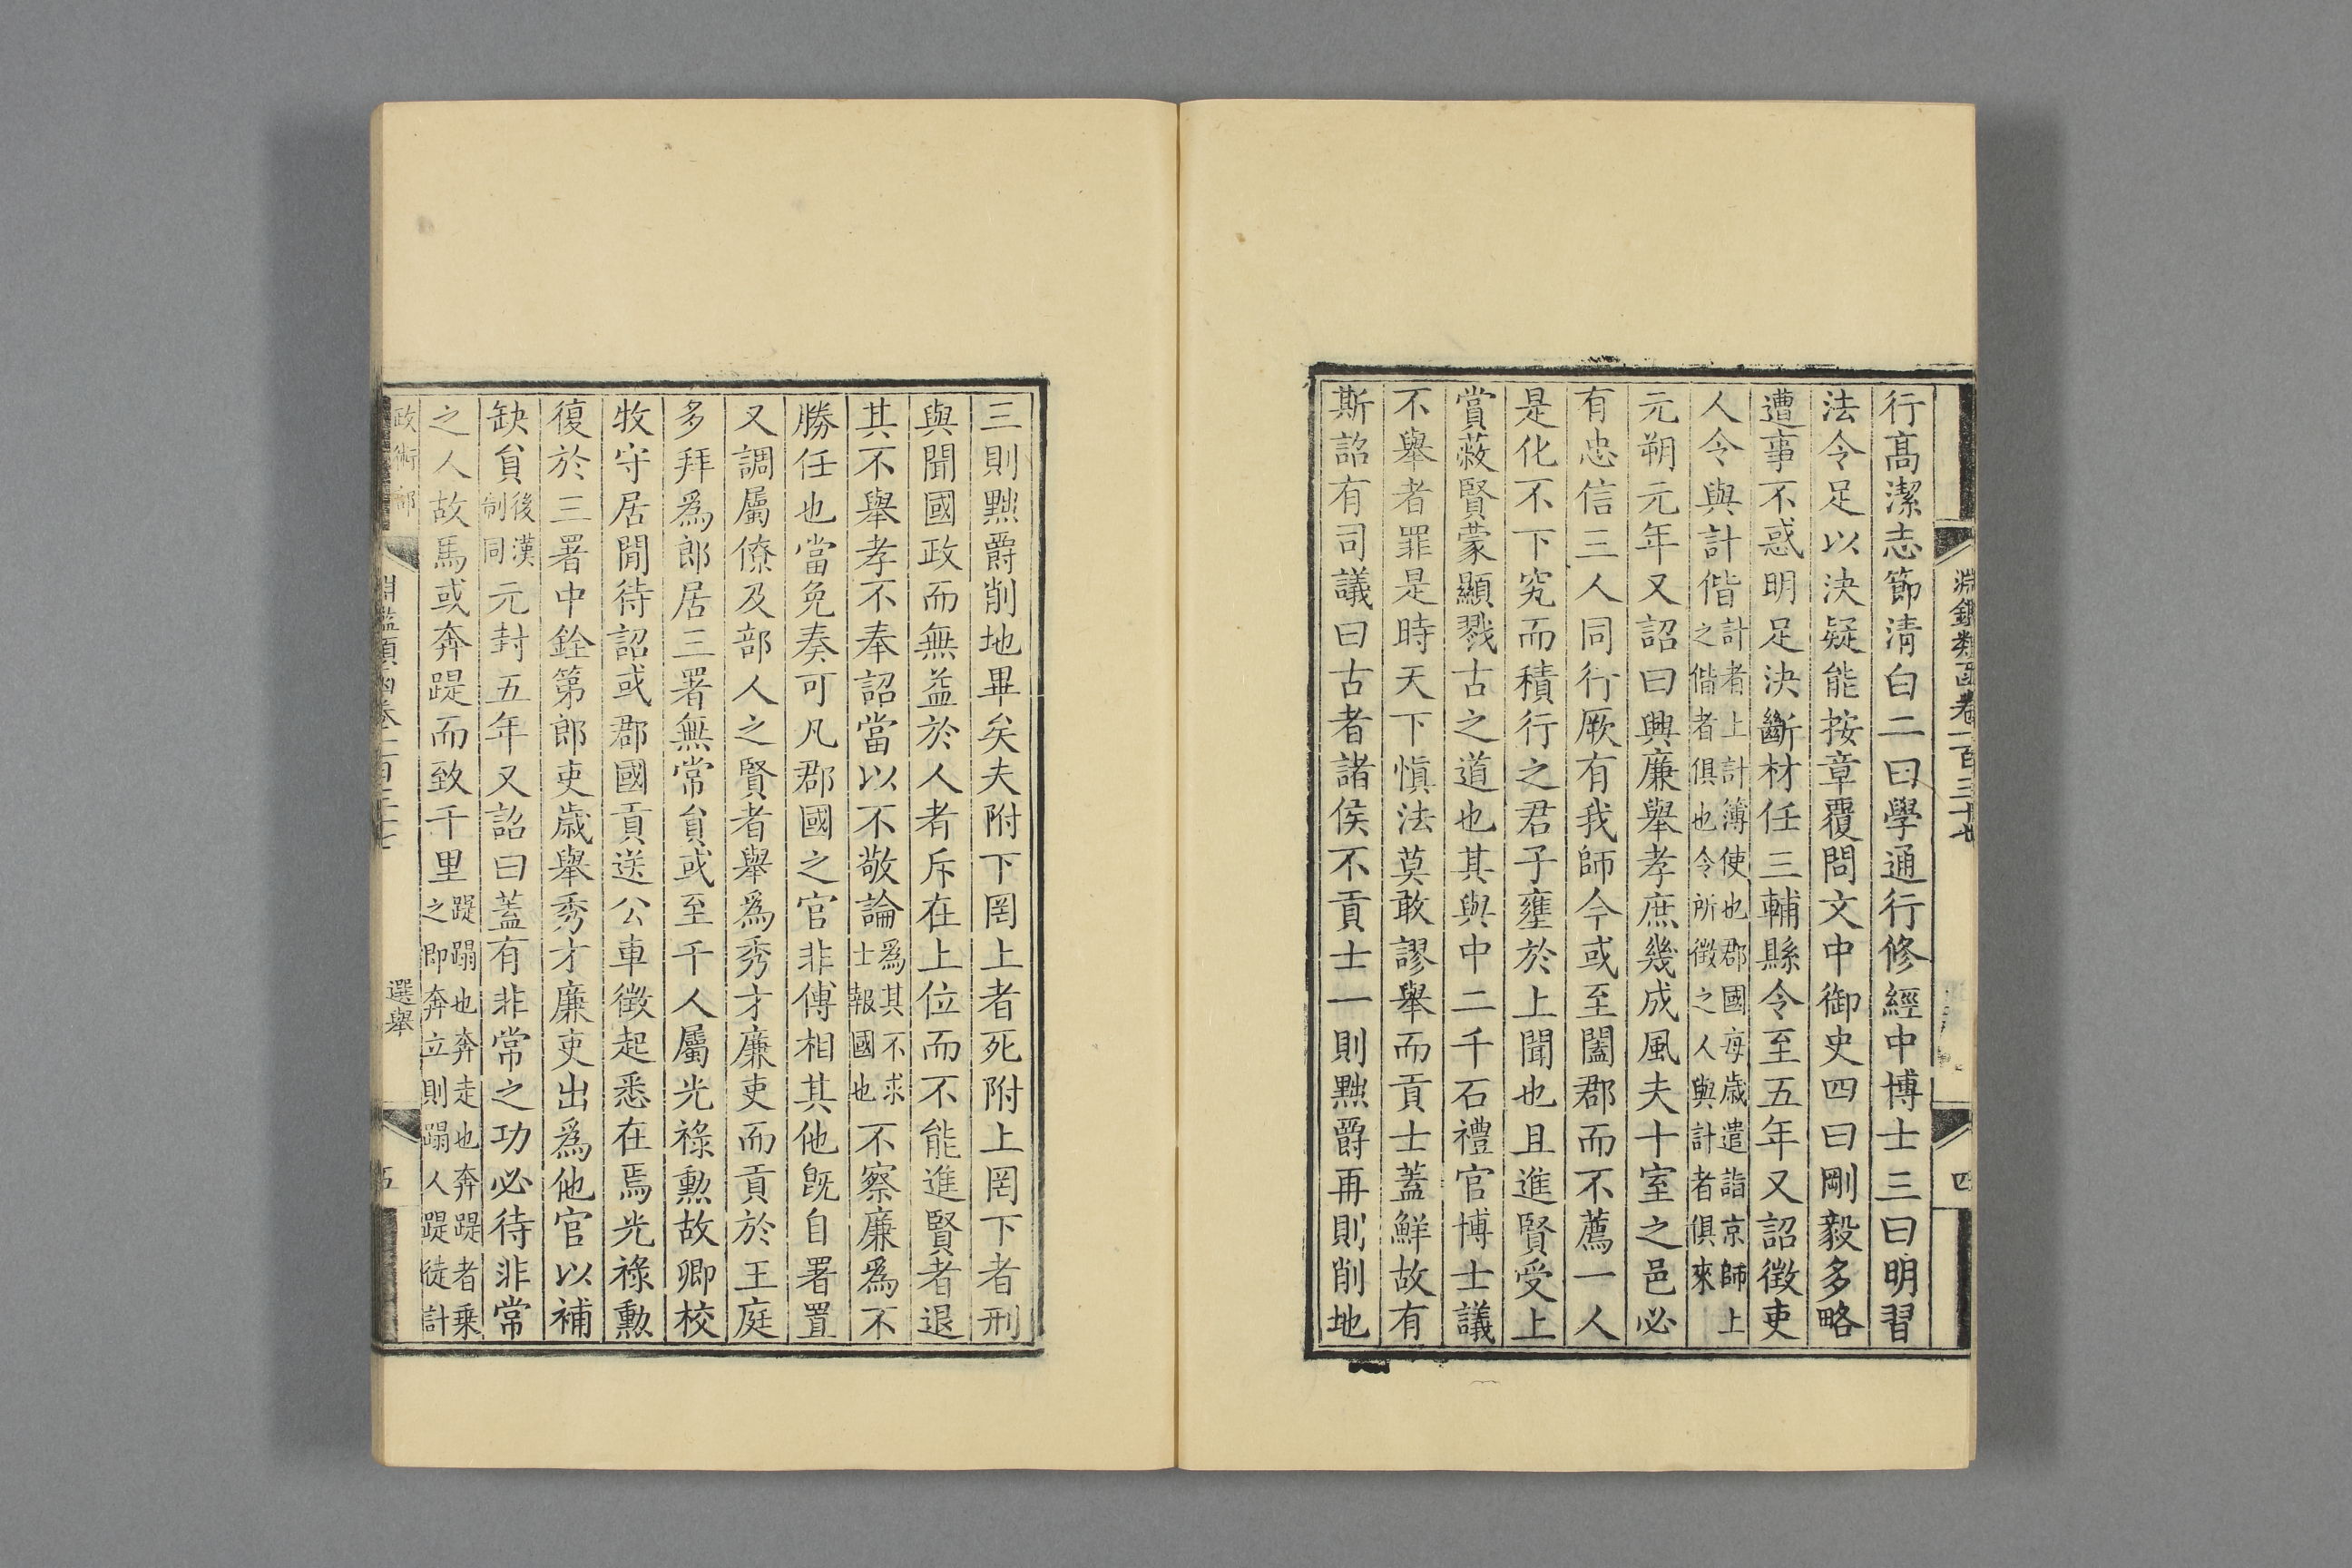 淵鑑類函卷一百三十七
四
行高潔志節清白二曰學通行修經中博士三曰明習
法令足以決疑能按章覆問文中御史四曰剛毅多略
遭事不惑明足決斷材任三輔縣令至五年又詔徵吏
人令與計偕計者上計簿使也郡國每歲遣詣京師上之偕者俱也令所徵之人與計者俱來
元朔元年又詔曰興廉舉孝庶幾成風夫十室之邑必
有忠信三人同行厥有我師今或至闔郡而不薦一人
是化不下究而積行之君子壅於上聞也且進賢受上
賞蔽賢蒙顯戮古之道也其與中二千石禮官博士議
不舉者罪是時天下慎法莫敢謬舉而貢士蓋鮮故有
斯詔有司議曰古者諸侯不貢士一則黜爵再則削地
三則黜爵削地畢矣夫附下罔上者死附上罔下者刑
與聞國政而無益於人者斥在上位而不能進賢者退
其不舉孝不奉詔當以不敬論為其不求士報國也不察廉為不
勝任也當免奏可凡郡國之官非傅相其他既自署置
又調屬僚及部人之賢者舉為秀才廉吏而貢於王庭
多拜為郎居三署無常員或至千人屬光祿勳故卿校
牧守居閒待詔或郡國貢送公車徵起悉在焉光祿勳
復於三署中銓第郎吏歲舉秀才廉吏出為他官以補
缺員後漢制同元封五年又詔曰蓋有非常之功必待非常
之人故馬或奔踶而致千里踶蹋也奔走也奔踶者乗之即奔立則蹋人踶徒計
政術部
淵鑑類函卷一百三十七
選舉
五